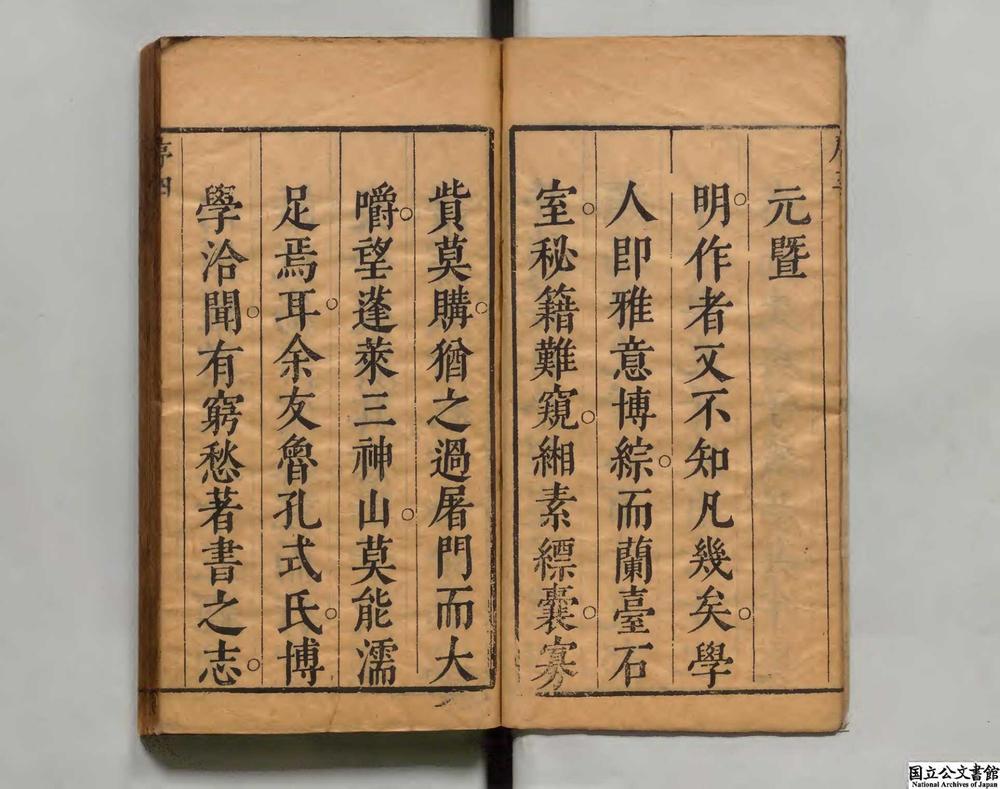 元暨
明作者又不知凡幾矣學
人即雅意博綜而蘭臺石
室秘籍難窺緗素縹囊寡
貲莫購猶之過屠門而大
嚼望蓬萊三神山莫能濡
足焉耳余友魯孔式氏博
學洽聞有窮愁著書之志
序四
国立公文書館
National Archives of Japan